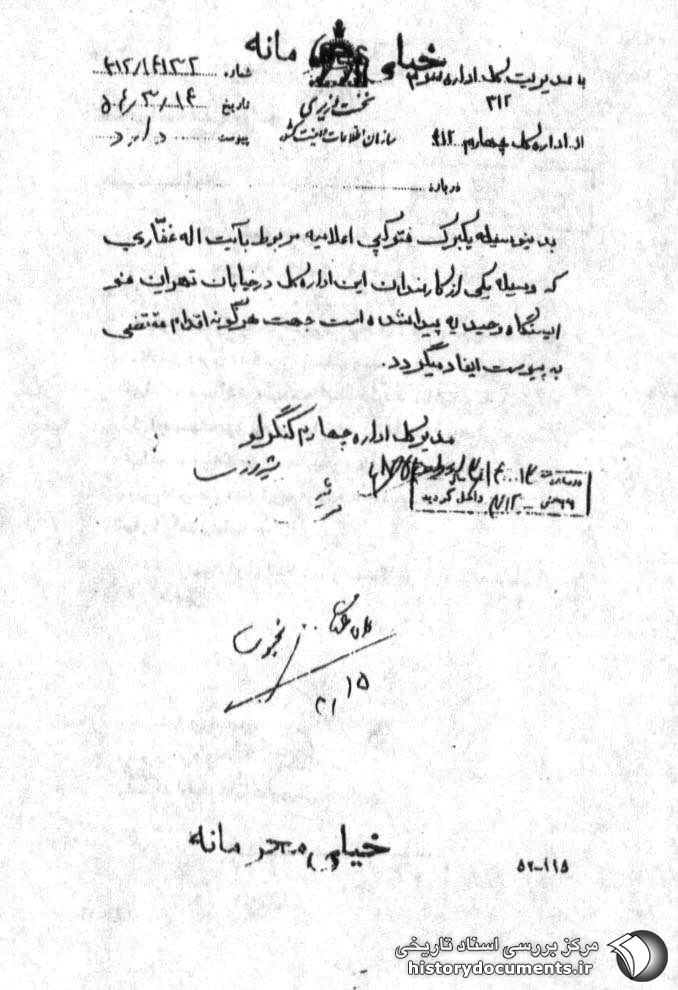 خیلی محرمانه
به مدیریت کل اداره سوم
۳۱۲
شماره ۴۱۲/۱۴۱۳۲
نخست وزیری
تاریخ ۵۴/۳/۱۴
از اداره کل چهارم ۴۱۲
سازمان اطلاعات و امنیت کشور
پیوست دارد
درباره
بدینوسیله یکبرگ فتوکپی اعلامیه مربوط بآیت اله غفاری
که وسیله یکی از کارمندان این اداره کل در خیابان تهران نو
ایستگاه وحیدیه پیدا شده است جهت هرگونه اقدام مقتضی
به پیوست ایفاد میگردد.
مدیر کل اداره چهارم کنگرلو
داخل گردید
۳/۱۵
خیلی محرمانه
۵۲-۱۱۵
مرکز بررسی اسناد تاریخی
historydocuments.ir